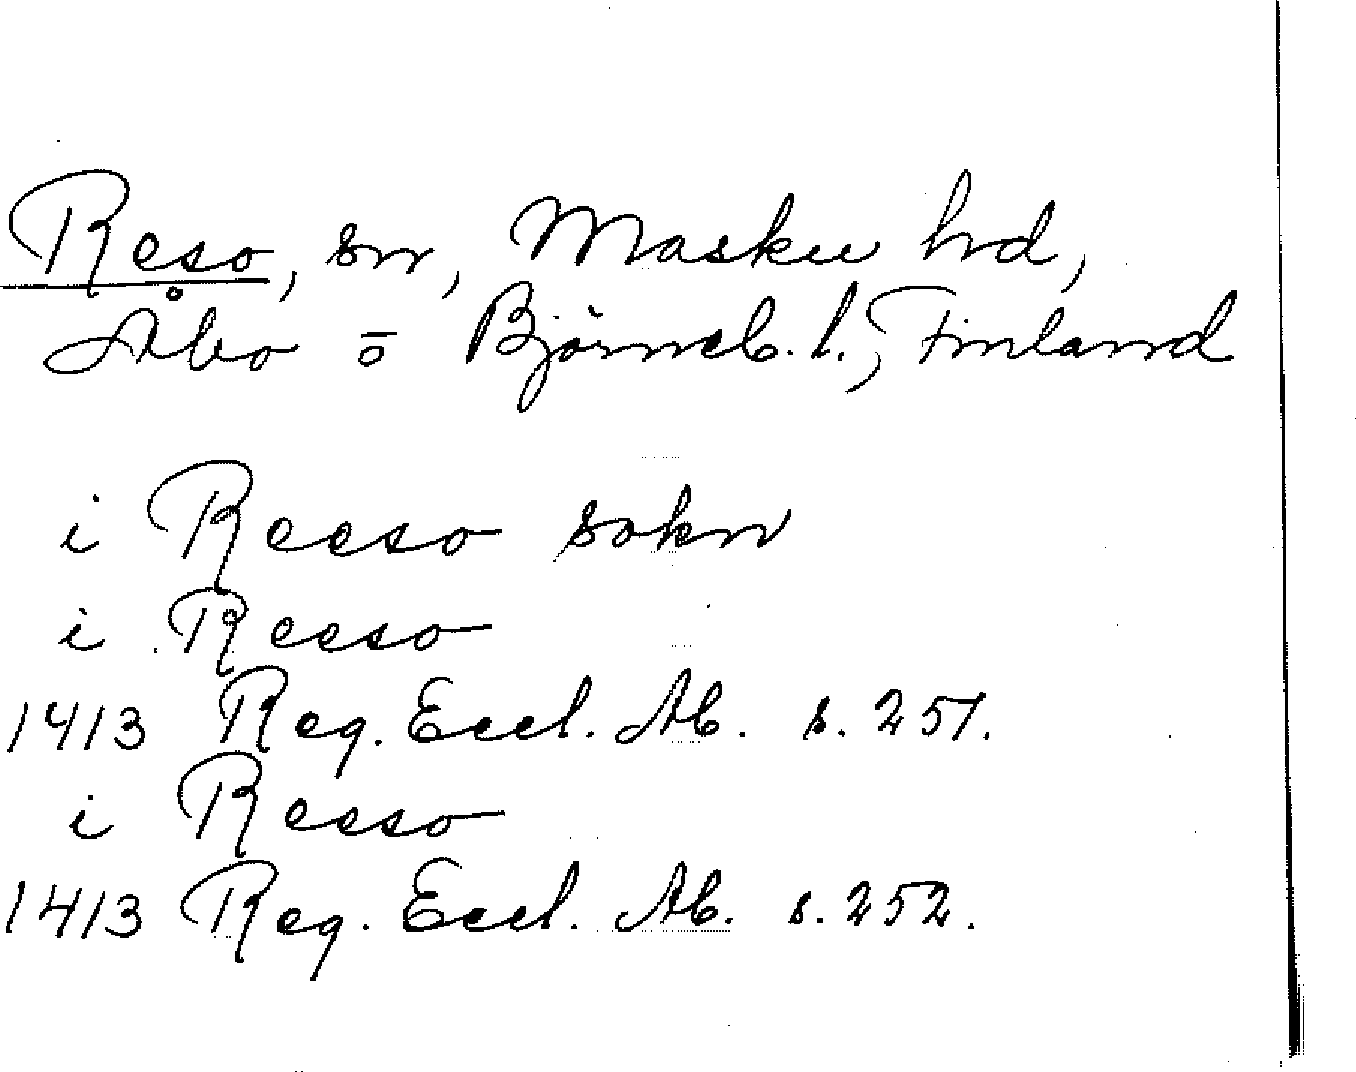 Reso, sn, Masku hd,
Åbo o Björneb. l., Finland
i Reeso sokn
i Reeso
1413 Reg. Eccl. Ab. s. 251.
i Resso
1413 Reg. Eccl. Ab. s. 252.